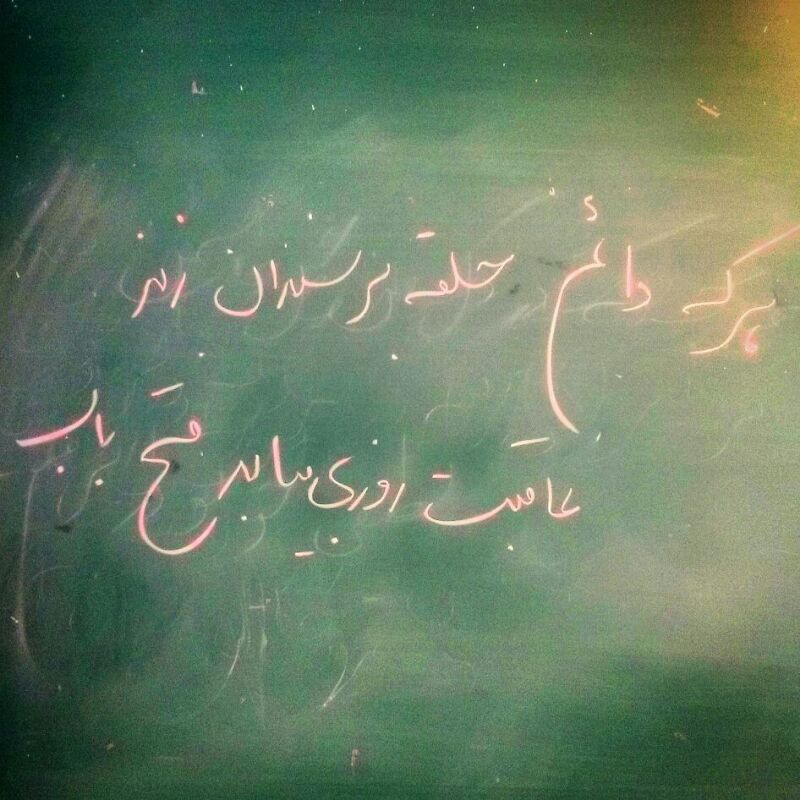 هر که دائم حلقه بر سندان زند
عاقبت روزی بیابد فتح باب